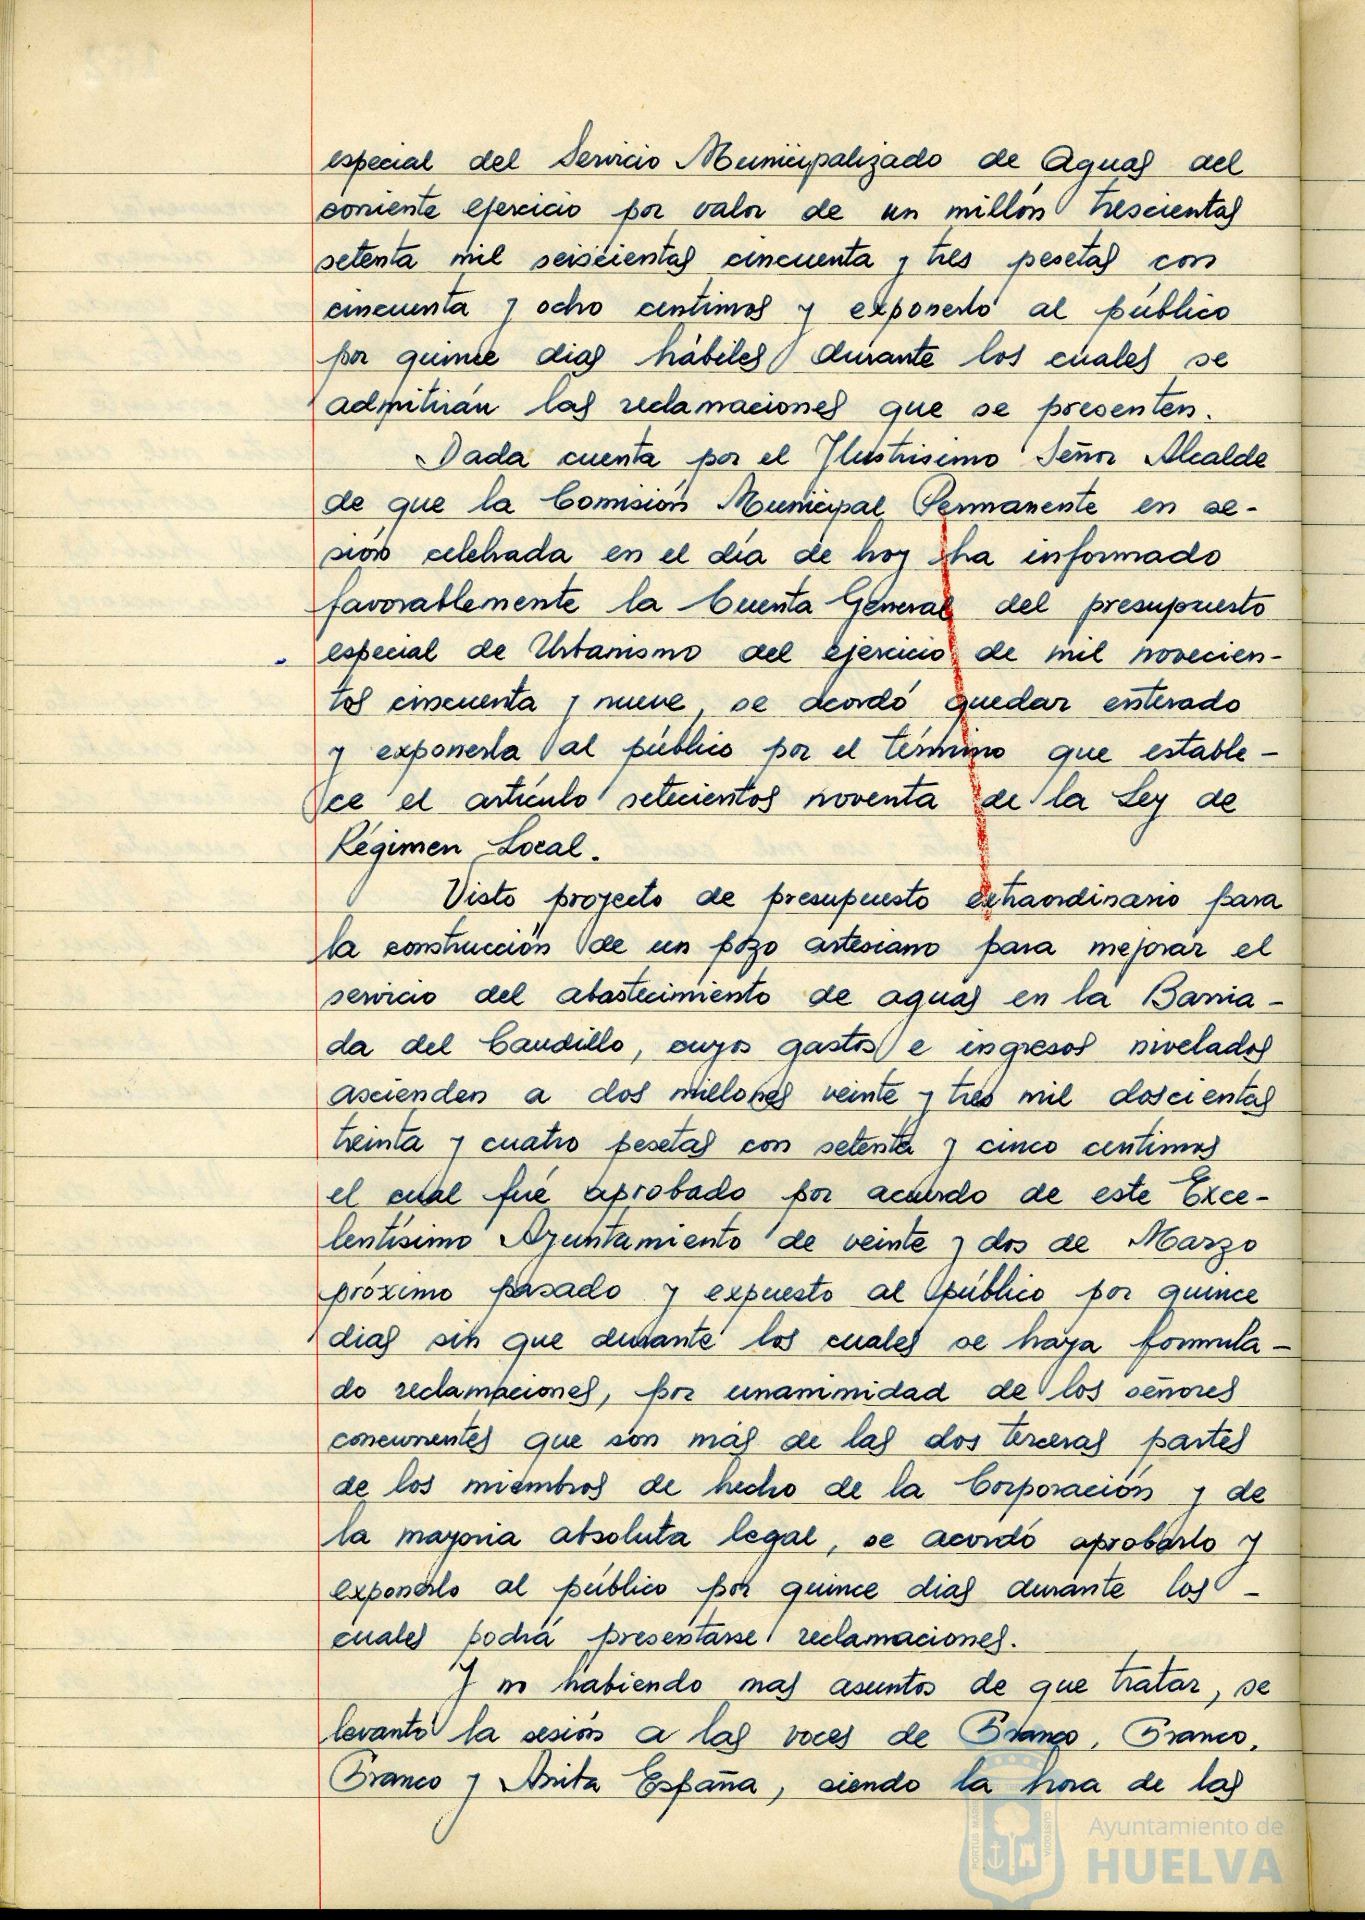 especial del Servicio Municipalizado de Aguas del
corriente ejercicio por valor de un millón trescientas
setenta mil seiscientas cincuenta y tres pesetas con
cincuenta y ocho centimos y exponerlo al público
por quince dias hábiles durante los cuales se
admitirán las reclamaciones que se presenten.
Dada cuenta por el Ilustrisimo Señor Alcalde
de que la Comisión Municipal Permanente en se-
sión celebrada en el día de hoy ha informado
favorablemente la Cuenta General del presupuesto
especial de Urbanismo del ejercicio de mil novecien-
tos cincuenta y nueve, se acordó quedar enterado
y exponerla al público por el término que estable-
ce el artículo setecientos noventa de la Ley de
Régimen Local.
Visto proyecto de presupuesto extraordinario para
la construcción de un pozo artesiano para mejorar el
servicio del abastecimiento de aguas en la Barria-
da del Caudillo, cuyos gastos e ingresos nivelados
ascienden a dos millones veinte y tres mil doscientas
treinta y cuatro pesetas con setenta y cinco centimos
el cual fué aprobado por acuerdo de este Exce-
lentísimo Ayuntamiento de veinte y dos de Marzo
próximo pasado y expuesto al público por quince
dias sin que durante los cuales se haya formula-
do reclamaciones, por unanimidad de los señores
concurrentes que son más de las dos terceras partes
de los miembros de hecho de la Corporación y de
la mayoria absoluta legal, se acordó aprobarlo y
exponerlo al público por quince dias durante los -
cuales podrá presentarse reclamaciones.
Y no habiendo mas asuntos de que tratar, se
levantó la sesión a las voces de Franco, Franco,
Franco y Arriba España, siendo la hora de las
PORTUS MARIS CUSTODIA
Ayuntamiento de
HUELVA